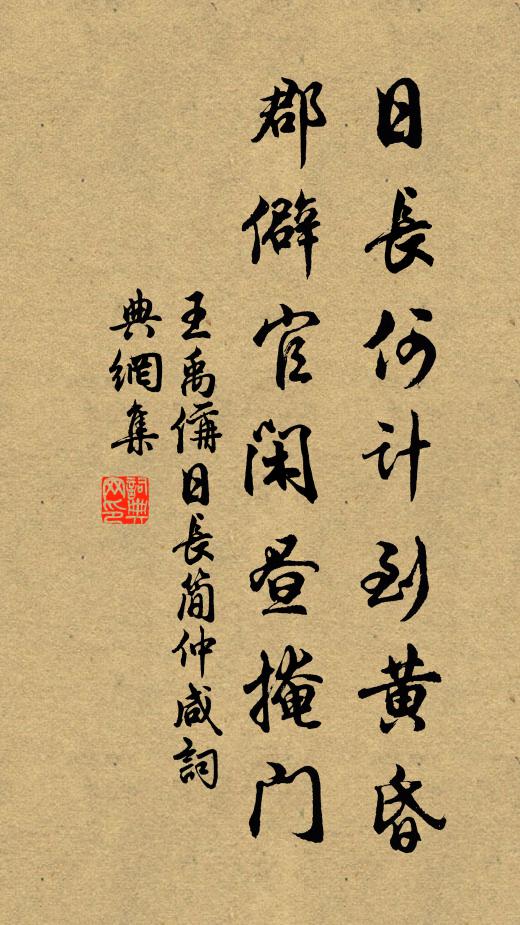 日長何計到黄昏
郡僻官閑晝掩門
王禹偁日長簡仲咸詞
典網集
詞典
网印